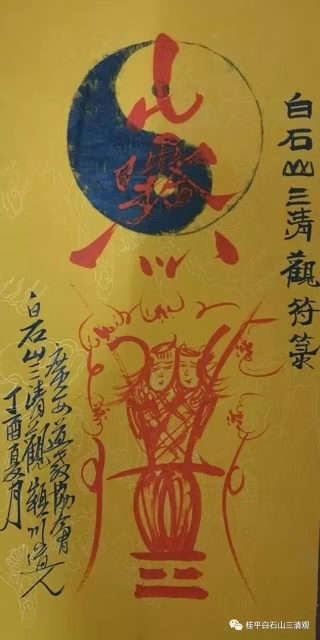 白石山三清觀符箓
廣西道教協會
白石山三清觀穎川道人
丁酉夏月
桂平白石山三清观